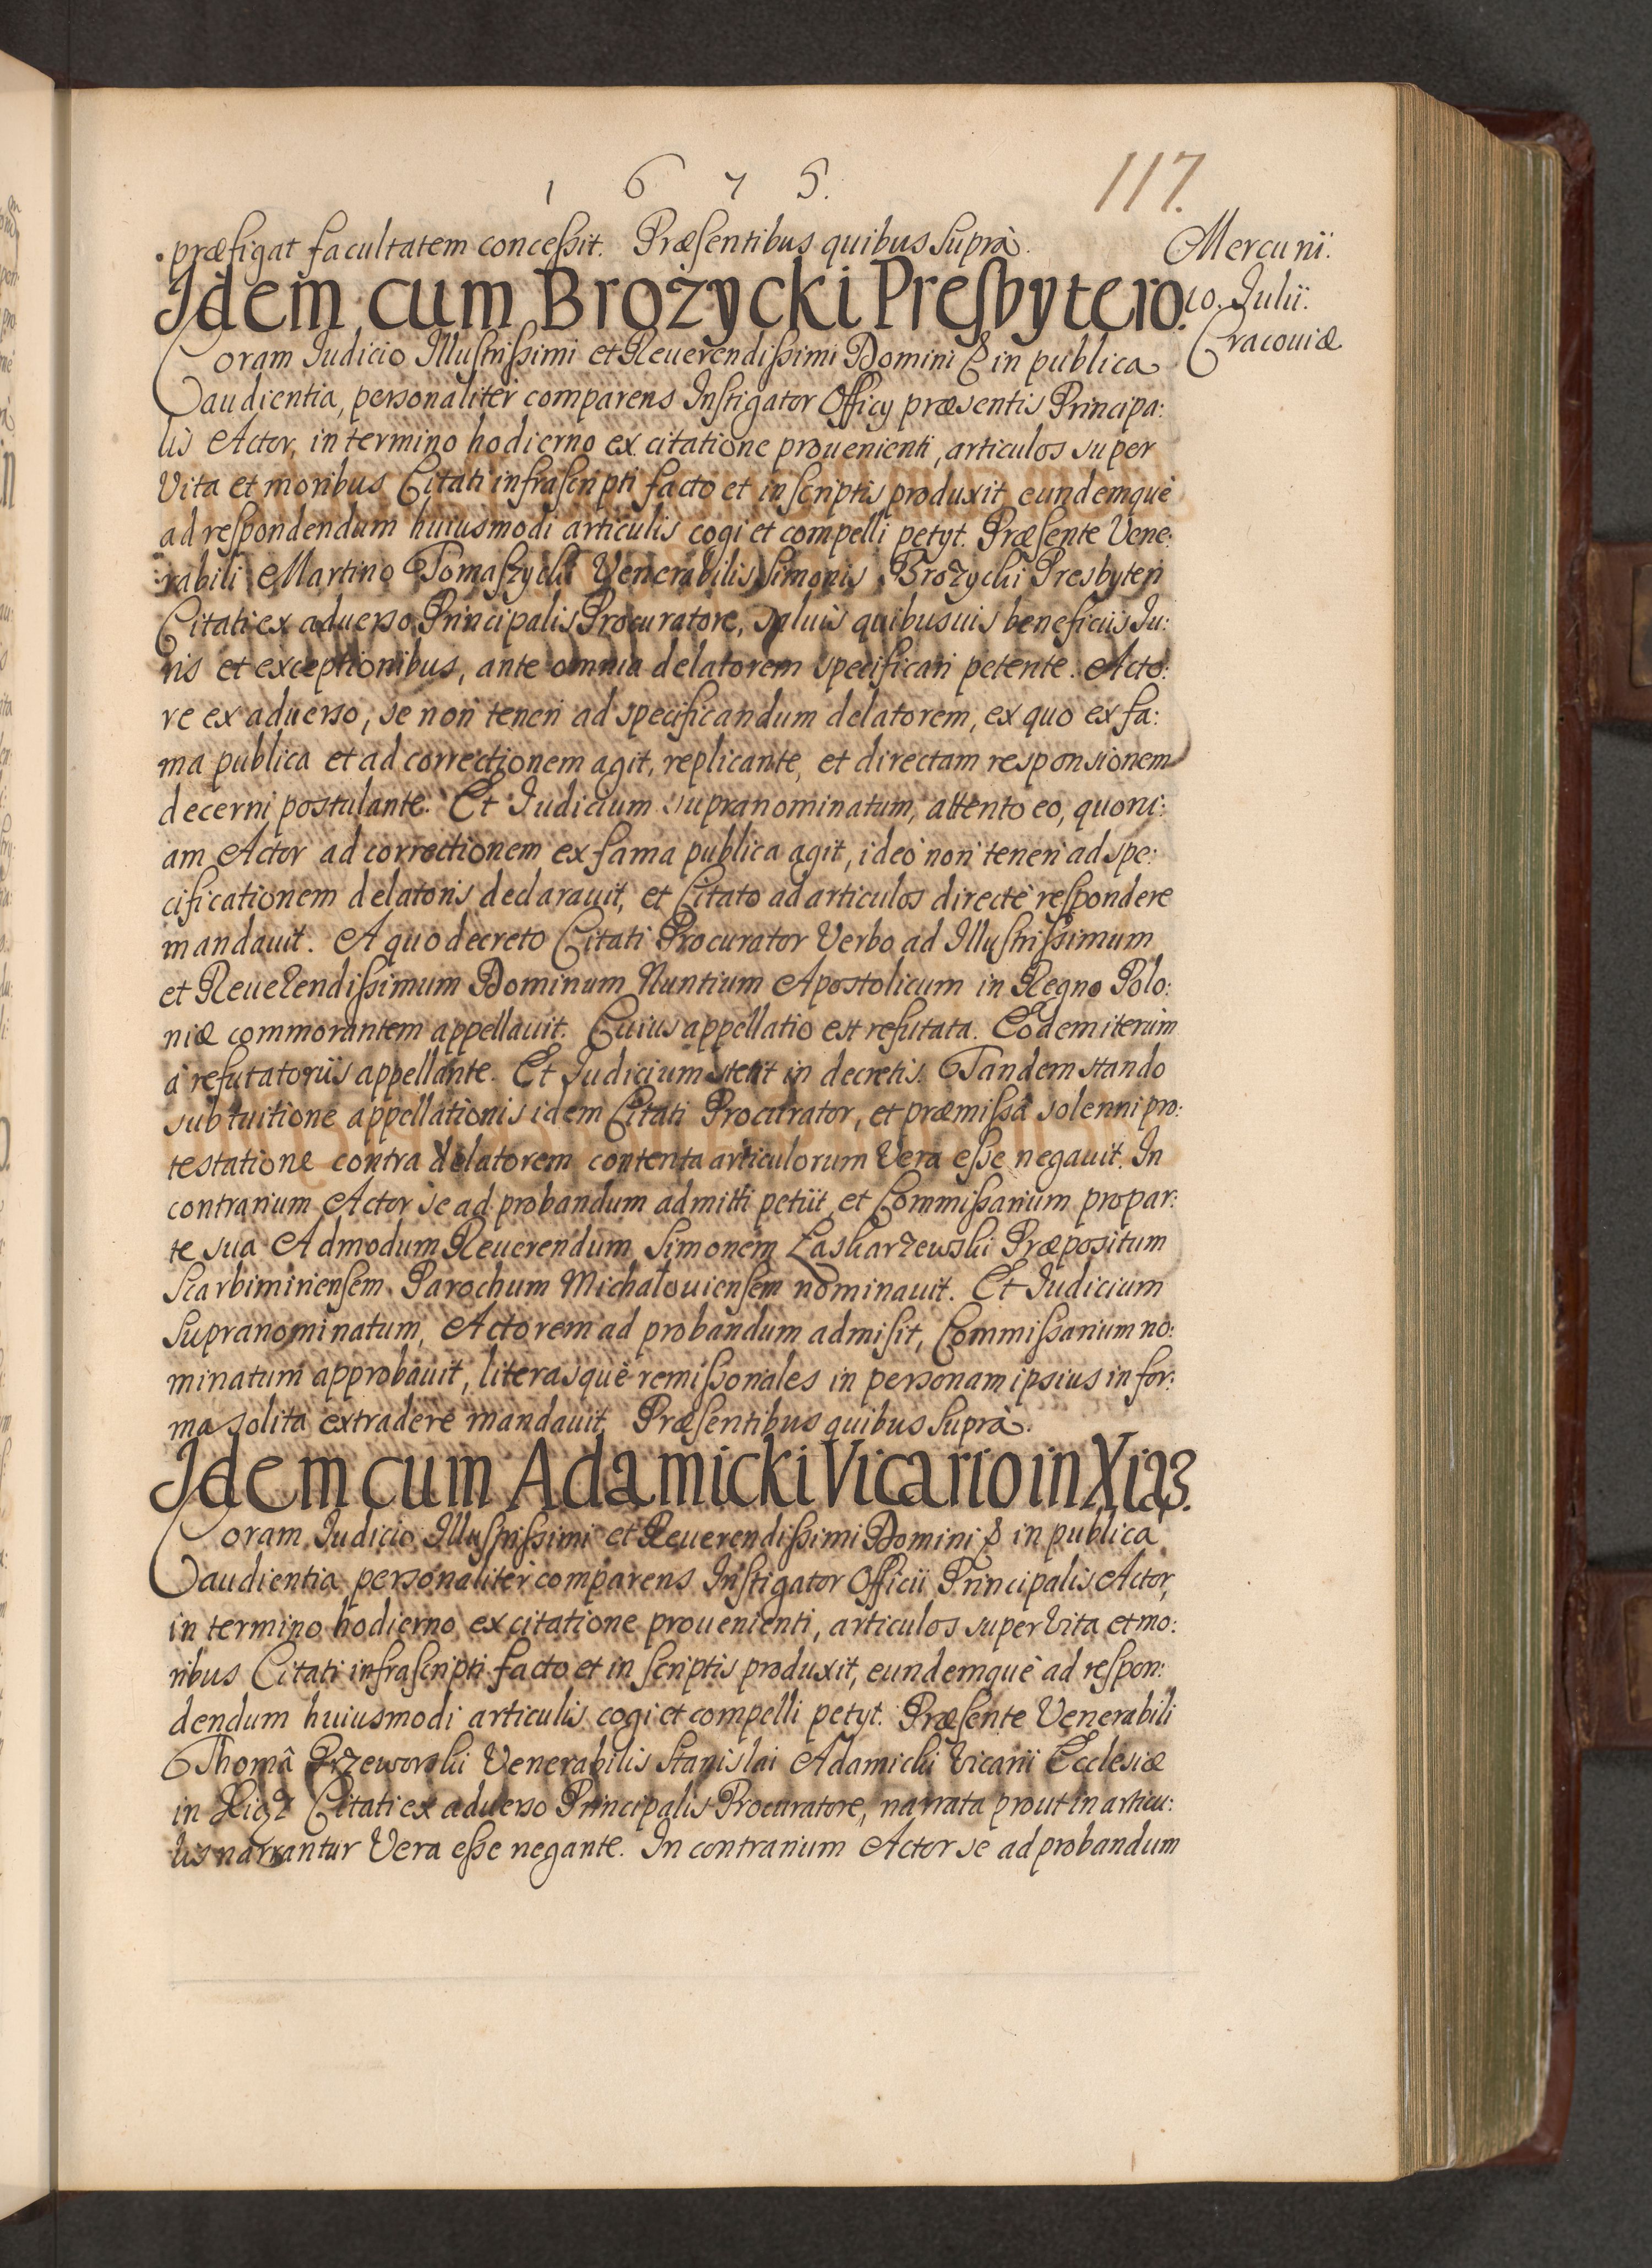 1675.
117.
præfigat facultatem conceßit. Præsentibus quibus suprà.
Mercurii.
10. Julii.
Cracouiæ
Idem cum Brożycki Presbytero.
Coram Judicio Illustrißimi et Reuerendißimi Domini & in publica
audientia, personaliter comparens Instigator Officy præsentis Principa:
lis Actor, in termino hodierno ex citatione prouenienti, articulos super
Vita et moribus Citati infrascripti facto et in scriptis produxit, eundemquè
ad respondendum huiusmodi articulis cogi et compelli petyt. Præsente Vene:
rabili Martino Tomaszycki Venerabilis Simonis Brożycki Presbyteri
Citati ex aduerso Principalis Procuratore, saluis quibusuis beneficiis Ju:
ris et exceptionibus, ante omnia delatorem specificari petente. Acto:
re ex aduerso, se non teneri ad specificandum delatorem, ex quo ex fa:
ma publica et ad correctionem agit, replicante, et directam responsionem
decerni postulante. Et Judicium supranominatum, attento eo, quoni:
am Actor ad correctionem ex fama publica agit, ideò non teneri ad spe:
cificationem delatoris declarauit, et Citato ad articulos directè respondere
mandauit. A quo decreto Citati Procurator Verbo ad Illustrißimum
et Reuerendißimum Dominum Nuntium Apostolicum in Regno Polo:
niæ commorantem appellauit. Cuius appellatio est refutata. Eodem iterùm
à refutatoriis appellante. Et Judicium stetit in decretis. Tandem stando
sub tuitione appellationis idem Citati Procurator, et præmißâ solenni pro:
testatione contra delatorem contenta articulorum Vera eße negauit. In
contrarium Actor se ad probandum admitti petiit, et Commißarium pro par:
te sua Admodum Reuerendum Simonem Łaskarzewski Præpositum
Scarbimiriensem Parochum Michałouiensem nominauit. Et Judicium
Supranominatum, Actorem ad probandum admisit, Commißarium no:
minatum approbauit, literasquè remißoriales in personam ipsius in for:
ma solita extradere mandauit. Præsentibus quibus suprà.
Idem cum Adamicki Vicario in Xiąż.
Coram Judicio Illustrißimi et Reuerendißimi Domini & in publica
audientia personaliter comparens Instigator Officii Principalis Actor,
in termino hodierno ex citatione prouenienti, articulos super Vita et mo:
ribus Citati infrascripti facto et in scriptis produxit, eundemquè ad respon:
dendum huiusmodi articulis cogi et compelli petyt. Præsente Venerabili
Thomâ Przeworski Venerabilis Stanislai Adamicki Vicarii Ecclesiæ
in Xiąż Citati ex aduerso Principalis Procuratore, narrata prout in articu:
lis narrantur Vera eße negante. In contrarium Actor se ad probandum